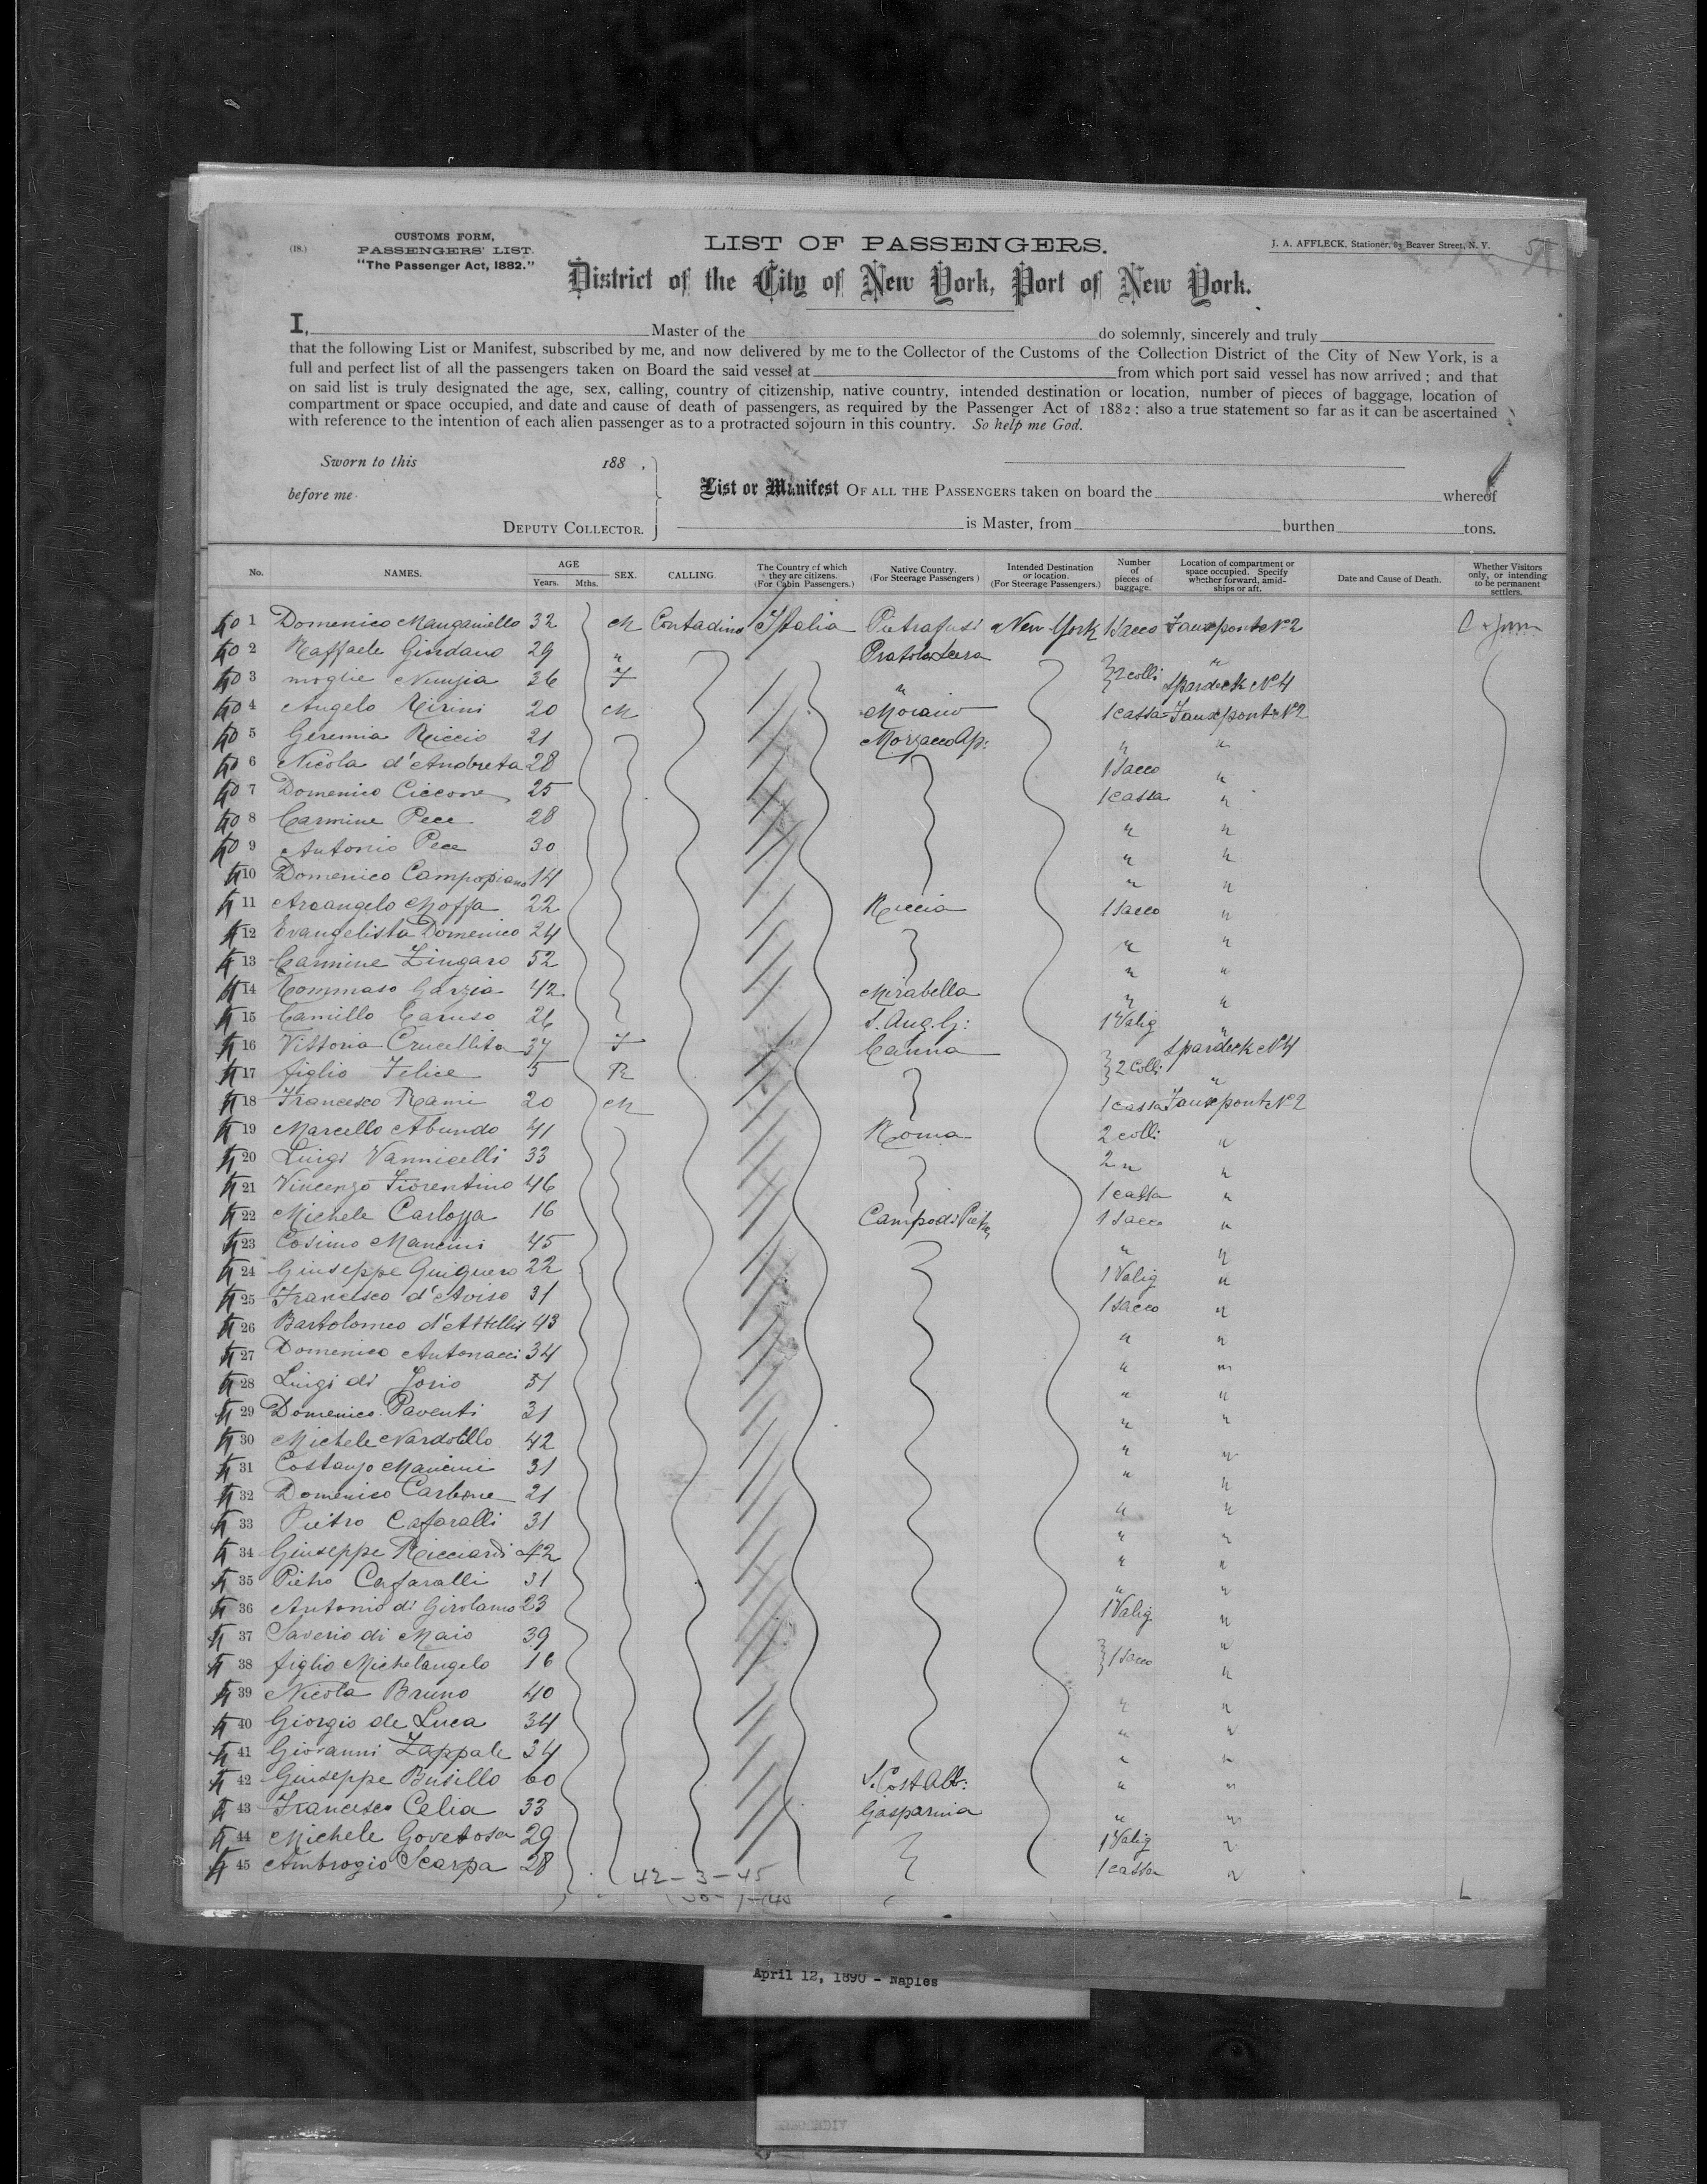 (18.)
CUSTOMS FORM,
PASSENGERS' LIST.
"The Passenger Act, 1882."
LIST OF PASSENGERS.
J. A. AFFLECK, Stationer, 83 Beaver Street, N. Y.
District of the City of New York, Port of New York.
I, Master of the do solemnly, sincerely and truly
that the following List or Manifest, subscribed by me, and now delivered by me to the Collector of the Customs of the Collection District of the City of New York, is a
full and perfect list of all the passengers taken on Board the said vessel at from which port said vessel has now arrived; and that
on said list is truly designated the age, sex, calling, country of citizenship, native country, intended destination or location, number of pieces of baggage, location of
compartment or space occupied, and date and cause of death of passengers, as required by the Passenger Act of 1882: also a true statement so far as it can be ascertained
with reference to the intention of each alien passenger as to a protracted sojourn in this country. So help me God.
Sworn to this 188 ,
before me
DEPUTY COLLECTOR.
List or Manifest OF ALL THE PASSENGERS taken on board the whereof
is Master, from burthen tons.
No. NAMES. AGE Years. Mths. SEX. CALLING. The Country of which they are citizens. (For Cabin Passengers.) Native Country. (For Steerage Passengers) Intended Destination or location. (For Steerage Passengers.) Number of pieces of baggage. Location of compartment or space occupied. Specify whether forward, amidships or aft. Date and Cause of Death. Whether Visitors only, or intending to be permanent settlers.
1 Domenico Manganiello 32 M Contadino Italia Pietrafusi New York 1 Sacco Fauxpont No 2
2 Raffaele Giordano 29 " Pratola Serra
3 moglie Nunzia 36 F " 2 colli Spardeck No 4
4 Angelo Ririni 20 M Moiano 1 cassa Fauxpont No 2
5 Geremia Riccio 21 " "
6 Nicola d'Andreta 28 1 Sacco "
7 Domenico Ciccone 25 1 cassa "
8 Carmine Pece 28 " "
9 Antonio Pece 30 " "
10 Domenico Campopiano 14 " "
11 Arcangelo Moffa 22 Riccia 1 Sacco "
12 Evangelista Domenico 24 " "
13 Carmine Zingaro 52 " "
14 Tommaso Garzia 42 Mirabella " "
15 Camillo Caruso 26 S. Aug. G: 1 Valig "
16 Vittoria Crucellita 37 F Canna Spardeck No 4
17 figlio Felice 5 R 2 colli "
18 Francesco Rami 20 M 1 cassa Fauxpont No 2
19 Marcello Abundo 41 Roma 2 colli "
20 Luigi Vannicelli 33 2 " "
21 Vincenzo Fiorentino 46 1 cassa "
22 Michele Carlozza 16 Campo di Pietra 1 Sacco "
23 Cosimo Mancini 45 " "
24 Giuseppe Quiquero 22 1 Valig "
25 Francesco d'Aviso 31 1 Sacco "
26 Bartolomeo d'Attellis 43 " "
27 Domenico Antonacci 34 " "
28 Luigi di Iorio 51 " "
29 Domenico Paventi 31 " "
30 Michele Nardolillo 42 " "
31 Costanzo Mancini 31 " "
32 Domenico Carbone 21 "
33 Pietro Cafaralli 31 " "
34 Giuseppe Ricciardi 42 " "
35 Pietro Cafaralli 31 " "
36 Antonio di Girolamo 23 1 Valig "
37 Saverio di Maio 39 "
38 figlio Michelangelo 16 1 Sacco "
39 Nicola Bruno 40 " "
40 Giorgio de Luca 34 " "
41 Giovanni Zappale 34 " "
42 Giuseppe Busillo 60 S. Cost Alb: " "
43 Francesco Celia 33 Gasparina " "
44 Michele Govetosa 29 1 Valig "
45 Ambrogio Scarpa 28 1 cassa "
42-3-45
April 12, 1890 - Naples